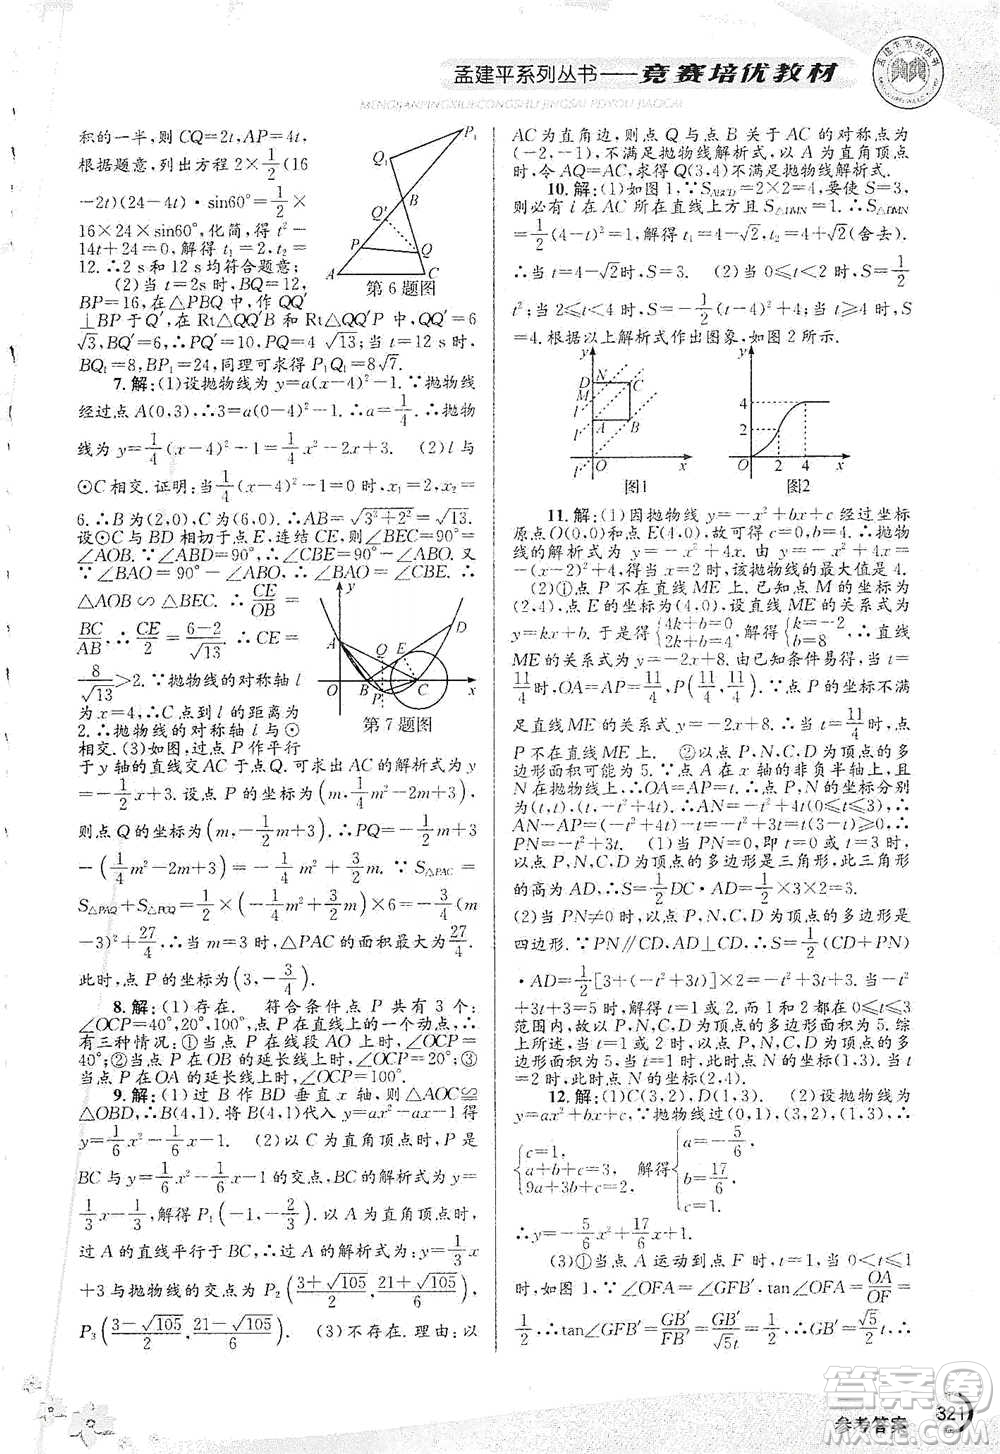 孟建平系列丛书——竞赛培优教材
MENGJIANPINGXILIECONGSHU JINGSAI PEIYOU JIAOCAI
积的一半,则 CQ=2t,AP=4t,
根据题意,列出方程 2×1/2(16
-2t)(24-4t)·sin60°=1/2
×16×24×sin60°,化简,得 t²-
14t+24=0,解得 t₁=2,t₂=
12.∴2 s 和 12 s 均符合题意;
(2)当 t=2s 时,BQ=12,
BP=16,在△PBQ 中,作 QQ′
⊥BP 于 Q′,在 Rt△QQ′B 和 Rt△QQ′P 中,QQ′=6
√3,BQ′=6,∴PQ′=10,PQ=4√13;当 t=12 s 时,
BQ₁=8,BP₁=24,同理可求得 P₁Q₁=8√7.
第 6 题图
7.解:(1)设抛物线为 y=a(x-4)²-1.∵抛物线
经过点 A(0,3),∴3=a(0-4)²-1.∴a=1/4.∴抛物
线为 y=1/4(x-4)²-1=1/4x²-2x+3. (2)l 与
⊙C 相交.证明:当1/4(x-4)²-1=0 时,x₁=2,x₂=
6.∴B 为(2,0),C 为(6,0).∴AB=√(3²+2²)=√13.
设⊙C 与 BD 相切于点 E.连结 CE,则∠BEC=90°=
∠AOB.∵∠ABD=90°,∴∠CBE=90°-∠ABO.又
∵∠BAO=90°-∠ABO,∴∠BAO=∠CBE.∴
△AOB∽△BEC.∴CE/OB=
BC/AB.∴CE/2=(6-2)/√13.∴CE=
8/√13>2.∵抛物线的对称轴 l
为 x=4,∴C 点到 l 的距离为
2.∴抛物线的对称轴 l 与⊙C
相交.(3)如图,过点 P 作平行
于 y 轴的直线交 AC 于点 Q.可求出 AC 的解析式为 y=
-1/2x+3.设点 P 的坐标为(m,1/4m²-2m+3),
则点 Q 的坐标为(m,-1/2m+3).∴PQ=-1/2m+3
-(1/4m²-2m+3)=-1/4m²+3/2m.∵S△PAC=
S△PAQ+S△PCQ=1/2×(-1/4m²+3/2m)×6=-3/4(m
-3)²+27/4.∴当 m=3 时,△PAC 的面积最大为27/4.
此时,点 P 的坐标为(3,-3/4).
第 7 题图
8.解:(1)存在. 符合条件点 P 共有 3 个:
∠OCP=40°,20°,100°,点 P 在直线上的一个动点,∴
有三种情况:①当点 P 在线段 AO 上时,∠OCP=
40°;②当点 P 在 OB 的延长线上时,∠OCP=20°;③
当点 P 在 OA 的延长线上时,∠OCP=100°.
9.解:(1)过 B 作 BD 垂直 x 轴,则△AOC≌
△OBD,∴B(4,1).将 B(4,1)代入 y=ax²-ax-1 得
y=1/6x²-1/6x-1. (2)以 C 为直角顶点时,P 是
BC 与 y=1/6x²-1/6x-1 的交点,BC 的解析式为 y=
1/3x-1/3,解得 P₁(-1,-2/3).以 A 为直角顶点时,
过 A 的直线平行于 BC,∴直线的解析式为 y=1/3x
+3 与抛物线的交点坐标为 P₂((3+√105)/2,(21+√105)/6),
P₃((3-√105)/2,(21-√105)/6). (3)不存在.理由:以
AC 为直角边,则点 Q 与点 B 关于 AC 的对称点为
(-2,-1),不满足抛物线解析式,以 A 为直角顶点
时,令 AQ=AC,求得 Q(3,4)不满足抛物线解析式.
10.解:(1)如图 1,∵S ABCD=2×2=4,要使 S=3,
则必有 l 在 AC 所在直线上方且 S△DMN=1.∴S△DMN
=1/2(4-t)²=1.解得 t₁=4-√2,t₂=4+√2(舍去).
∴当 t=4-√2时,S=3. (2)当 0≤t<2 时,S=1/2
t²;当 2≤t<4 时,S=-1/2(t-4)²+4;当 t≥4 时,S
=4.根据以上解析式作出图象,如图 2 所示.
图1
图2
11.解:(1)因抛物线 y=-x²+bx+c 经过坐标
原点 O(0,0)和点 E(4,0),故可得 c=0,b=4,∴抛物线
的解析式为 y=-x²+4x. 由 y=-x²+4x,y=-(x-
2)²+4,得当 x=2 时,该抛物线的最大值是 4.
(2)①点 P 不在直线 ME 上.已知点 M 的坐标为
(2,4),点 E 的坐标为(4,0),设直线 ME 的关系式为
y=kx+b.于是得{4k+b=0 2k+b=4,解得{k=-2 b=8.∴直线
ME 的关系式为 y=-2x+8.由已知条件易得,当 t=
11/4时,OA=AP=11/4,P(11/4,11/4).∵点 P 的坐标不满
足直线 ME 的关系式 y=-2x+8.∴当 t=11/4时,点
P 不在直线 ME 上. ②以点 P,N,C,D 为顶点的多
边形面积可能为 5.∵点 A 在 x 轴的非负半轴上,且
N 在抛物线上,∴OA=AP=t,∴点 P,N 的坐标分别
为(t,t),(t,-t²+4t).∴AN=-t²+4t(0≤t≤3),∴
AN-AP=(-t²+4t)-t=-t²+3t=t(3-t)≥0,∴
PN=-t²+3t. (1)当 PN=0,即 t=0 或 t=3 时,
以点 P,N,C,D 为顶点的多边形是三角形,此三角形
的高为 AD,∴S=1/2DC·AD=1/2×3×2=3.
(2)当 PN≠0 时,以点 P,N,C,D 为顶点的多边形是
四边形.∵PN∥CD,AD⊥CD,∴S=1/2(CD+PN)
·AD=1/2[3+(-t²+3t)]×2=-t²+3t+3,当-t²+
3t+3=5 时,解得 t=1 或 2.而 1 和 2 都在 0≤t≤3
范围内,故以 P,N,C,D 为顶点的多边形面积为 5.综
上所述,当 t=1 或 2 时,以点 P,N,C,D 为顶点的多
边形面积为 5,当 t=1 时,此时点 N 的坐标(1,3),当
t=2 时,此时点 N 的坐标(2,4).
12.解:(1)C(3,2),D(1,3). (2)设抛物线为
y=ax²+bx+c,∵抛物线过(0,1),(3,2),(1,3),∴
{c=1, a+b+c=3, 9a+3b+c=2. 解得{a=-5/6, b=17/6, c=1.
∴y=-5/6x²+17/6x+1.
(3)①当点 A 运动到点 F 时,t=1,当 0<t≤1
时,如图 1,∵∠OFA=∠GFB′,tan∠OFA=OA/OF=
1/2,∴tan∠GFB′=GB′/FB′=GB′/√5t=1/2,∴GB′=√5/2t,∴
参考答案 321
答案圈